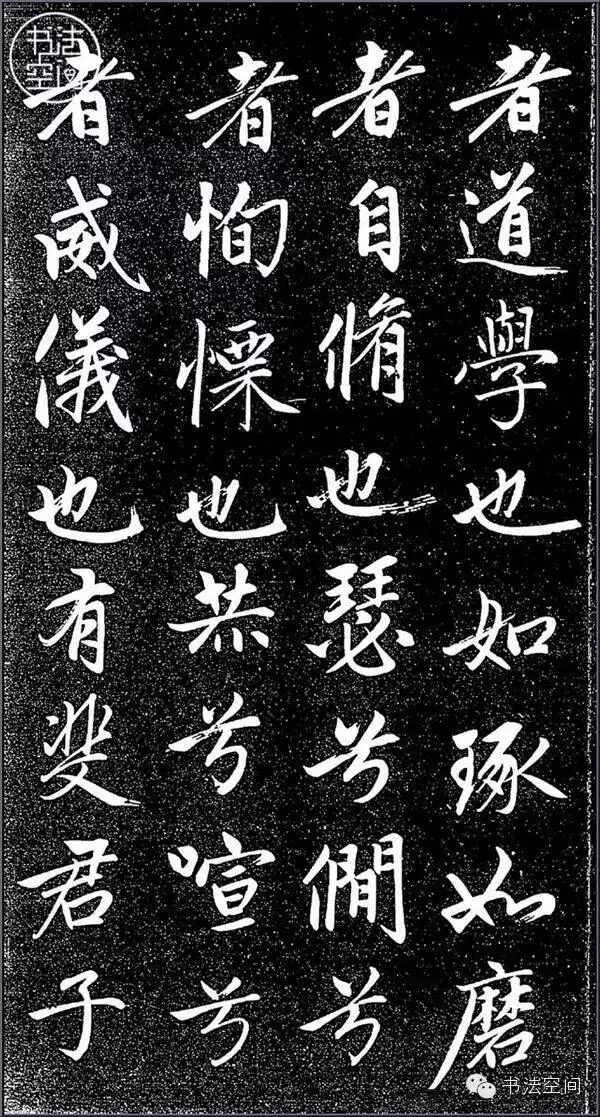 者道學也如琢如磨
者自脩也瑟兮僩兮
者恂慄也赫兮喧兮
者威儀也有斐君子
书法
空间
书法空间